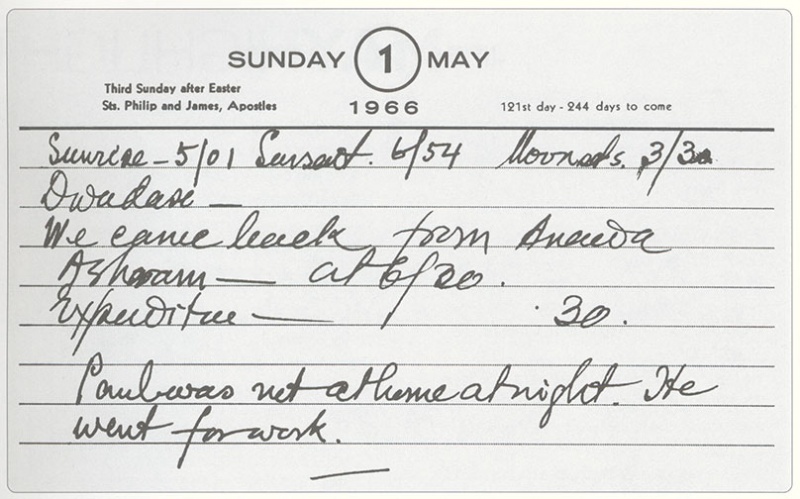 SUNDAY 1 MAY
Third Sunday after Easter
Sts. Philip and James, Apostles
1966
121st day - 244 days to come
Sunrise - 5/01 Sunset. 6/54 Moonsets. 3/30
Dwadasi —
We came back from Ananda
Ashram — at 6/20.
Expenditure — .30.
Paul was not at home at night. He
went for work.